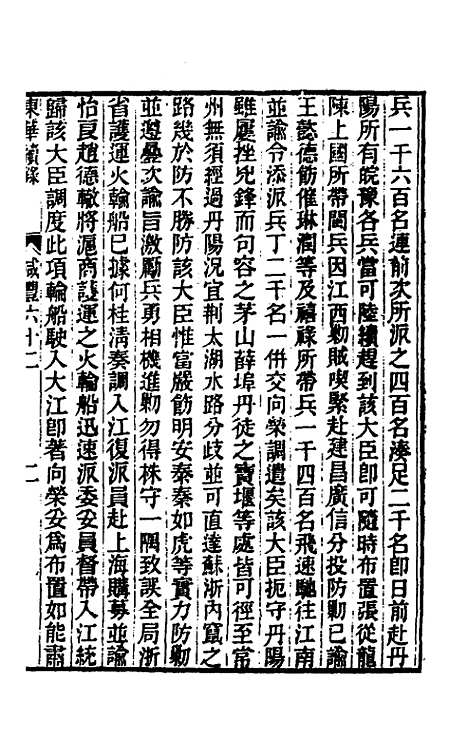 兵一千六百名連前次所派之四百名湊足二千名卽日前赴丹
陽所有皖豫各兵當可陸續趕到該大臣卽可隨時布置張從龍
陳上國所帶閩兵因江西勦賊喫緊赴建昌廣信分投防勦已諭
王懿德飭催琳潤等及禧祿所帶兵一千四百名飛速馳往江南
並諭令添派兵丁二千名一倂交向榮調遣矣該大臣扼守丹陽
雖屢挫兇鋒而句容之茅山薛埠丹徒之寶堰等處皆可徑至常
州無須經過丹陽況宜荆太湖水路分歧並可直達蘇浙內竄之
路幾於防不勝防該大臣惟當嚴飭明安泰秦如虎等實力防勦
並遵疊次諭旨激勵兵勇相機進勦勿得株守一隅致誤全局浙
省護運火輪船已據何桂淸奏調入江復派員赴上海購募並諭
怡良趙德轍將滬商護運之火輪船迅速派委妥員督帶入江統
歸該大臣調度此項輪船駛入大江卽著向榮妥爲布置如能肅
東華續錄 咸豐六十二 二